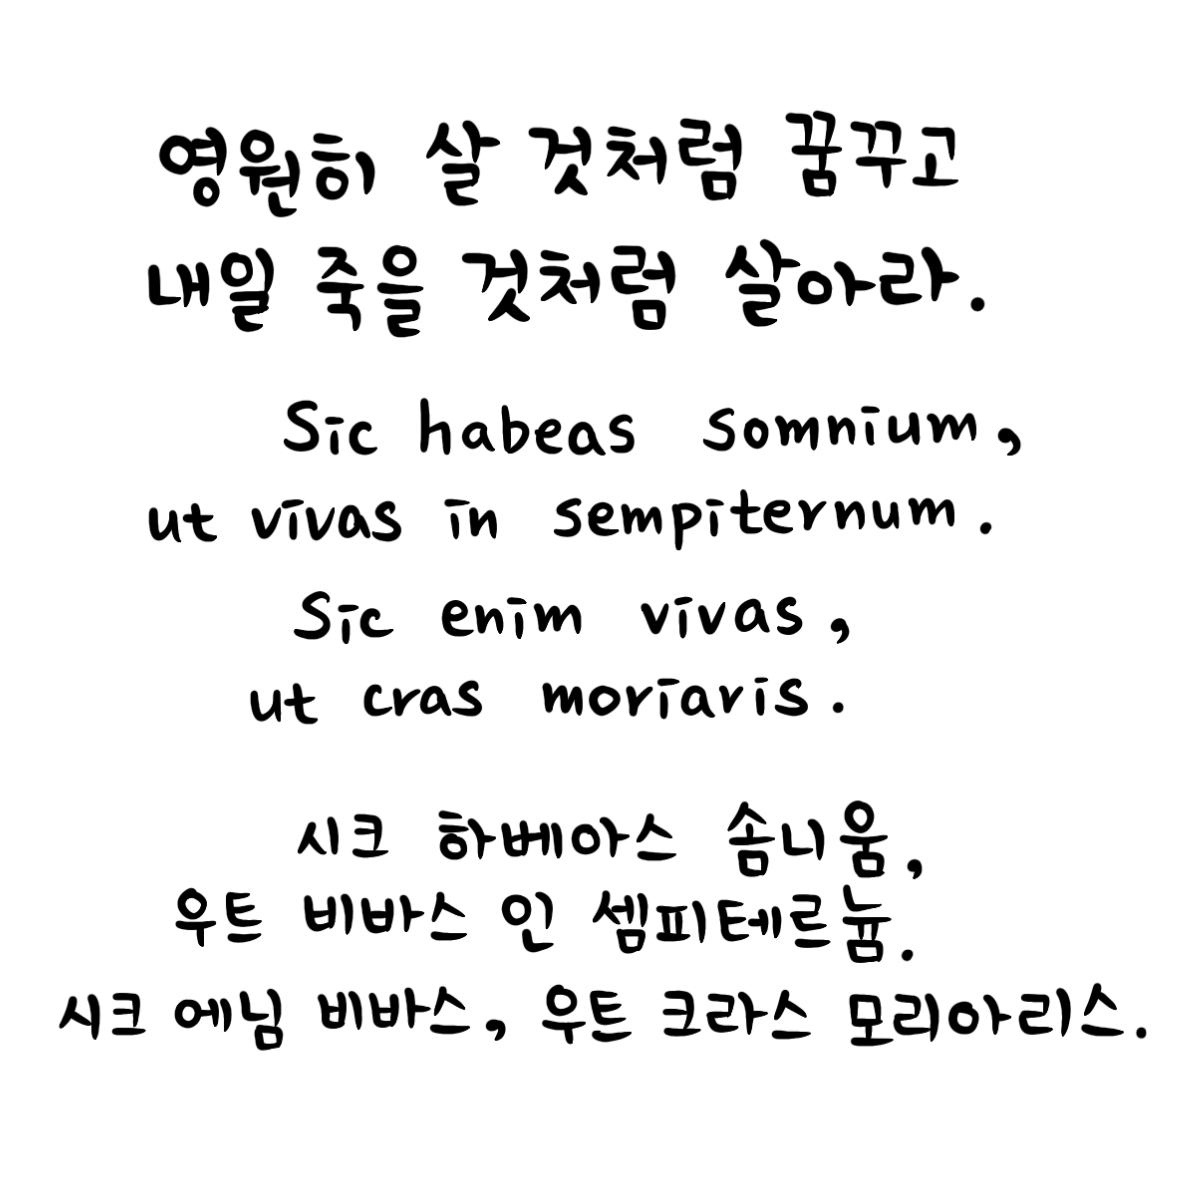 영원히 살 것처럼 꿈꾸고
내일 죽을 것처럼 살아라.
Sic habeas somnium,
ut vivas in sempiternum.
Sic enim vivas,
ut cras moriaris.
시크 하베아스 솜니움,
우트 비바스 인 셈피테르눔.
시크 에님 비바스, 우트 크라스 모리아리스.